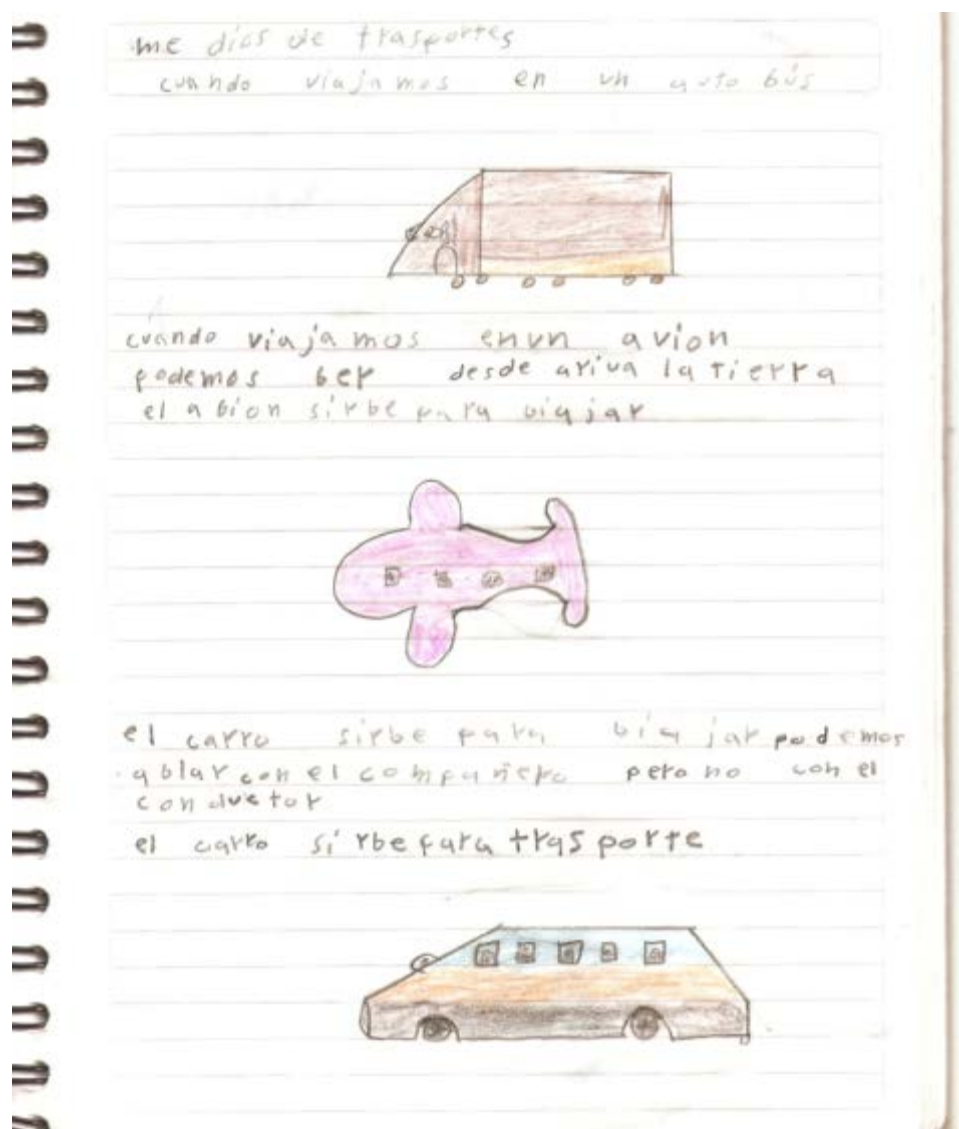 me dios de trasportes
cuando viajamos en un auto bús
cuando viajamos enun avion
podemos ber desde ariva la tierra
el abion sirbe para viajar
el carro sirbe para biajar podemos
ablar con el compañero pero no con el
conductor
el carro sirbe para trasporte